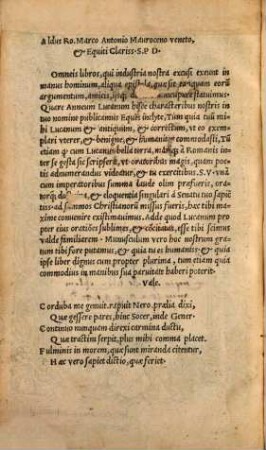 Aldus Ro. Marco Antonio Mauroceno veneto,
& Equiti Clariss. S. P D.
Omneis libros, qui industria nostra excusi exeunt in
manus hominum, aliqua epistola, quasi
argumentum, amicis, statuimus.
Quare Anneum Lucanum hisce characteribus nostris in
tuo nomine publicamus Eques inclyte, Tum, quia tuũ mihi
Lucanum & antiquũ, & correctũ, ut eo exempla
ri vterer, & benigne, & humaniter commodasti, Tũ
etiam q̃ cum Lucanus bella terra, mariq; à Romanis in
ter se gesta sic scripserit, ut oratoribus magis, quam poe
tis adnumerandus videatur, & tu exercitus. S. V. uná
cum imperatoribus summa laude olim præfueris, ora
torq; & eloquentia singulari à Senatu tuo sæpi
ad summos Christianorũ missus fueris, hæc tibi ma
xime conuenire existimauimus. Adde quod Lucanum pro
pter eius orationes sublimes, & cõcitatas, esse tibi scimus
valde familiarem. Munusculum vero hoc nostrum gra
tum tibi fore putamus, & quia tu es humanis: & quia
ipse liber dignus cum propter plurima, tum etiam quia
commodius in manibus sua paruitate haberi poterit.
Vale.
Corduba me genuit, rapuit Nero, prælia dixi,
Quæ gessere pares, hinc Socer, inde Gener.
Continuo nunquam direxi carmina ductu,
Quæ tractim serpit, plus mihi comma placet.
Fulminis in morem, quæ sunt miranda citentur,
Hæc vero sapiet dictio, quæ feriet.